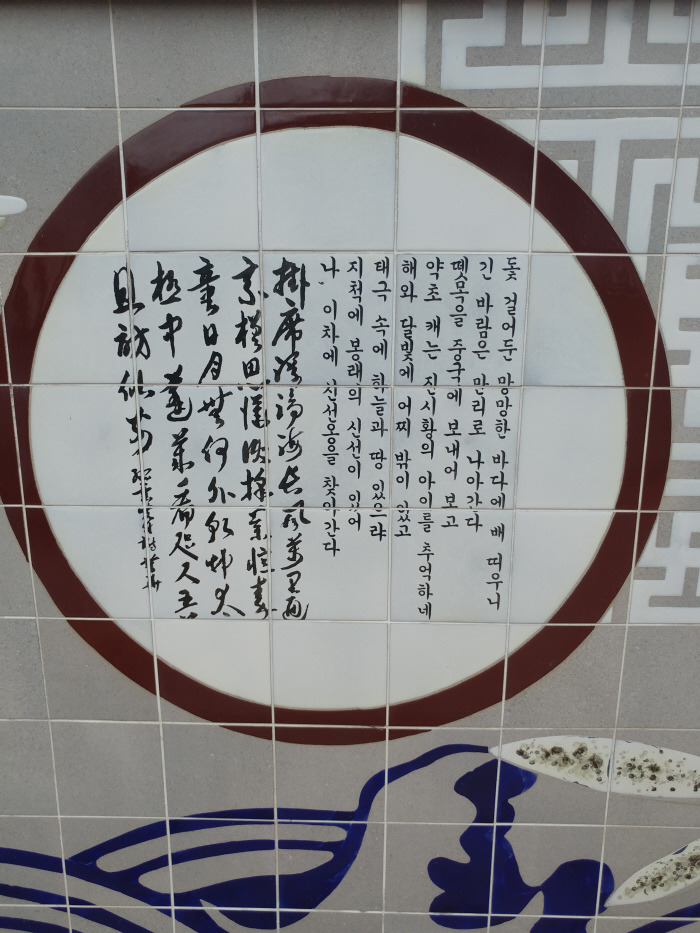 돛 걸어둔 망망한 바다에 배 띠우니
긴 바람은 만리로 나아간다
뗏목을 중국에 보내어 보고
약초 캐는 진시황의 아이를 추억하네
해와 달빛에 어찌 밖이 있고
태극 속에 하늘과 땅 있으랴
지척에 봉래의 신선이 있어
나 이차에 신선옹을 찾아간다
掛席浮滄海長風萬里通
乘槎思漢使採藥憶秦
童日月無何外乾坤太
極中蓬萊看咫尺吾
且訪仙翁